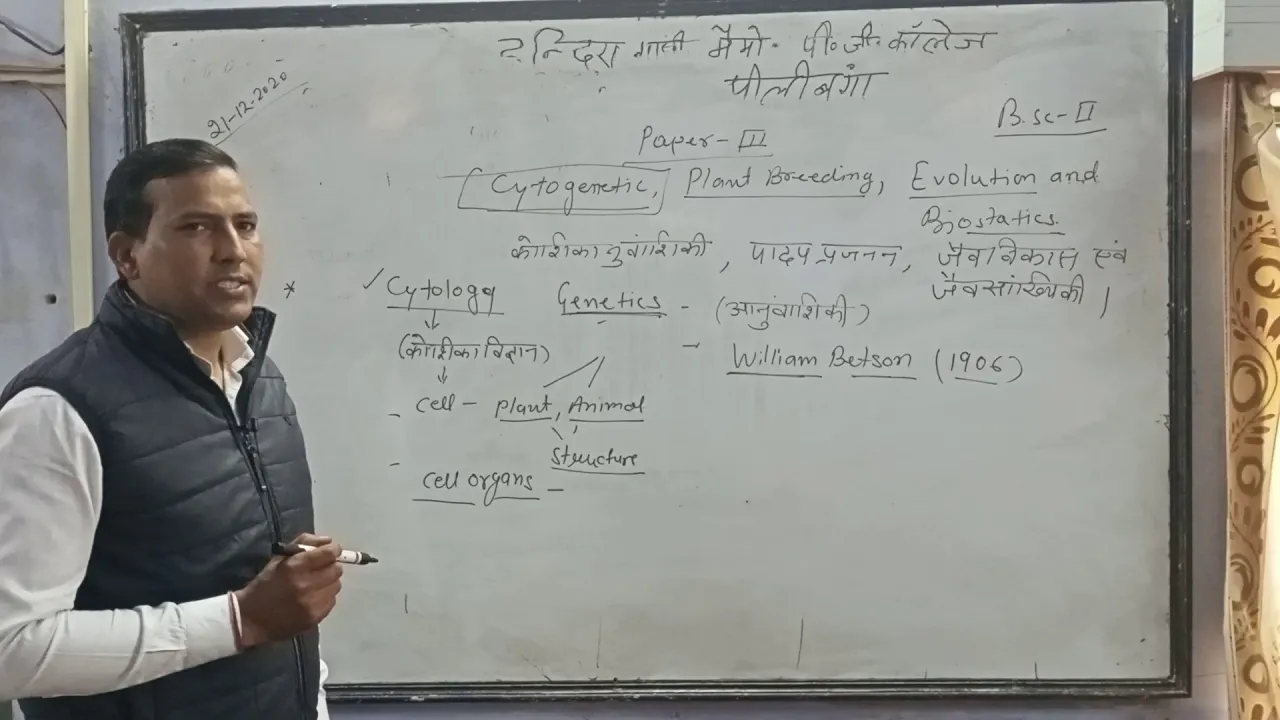 इन्दिरा गांधी मैमो. पी.जी. कॉलेज
पीलीबंगा
21-12-2020
B.sc-II
Paper-III
Cytogenetic, Plant Breeding, Evolution and
Biostatics.
कोशिकानुवांशिकी, पादप प्रजनन, जैवविकास एवं
जैवसांख्यिकी।
* ✓ Cytology Genetics - (आनुवांशिकी)
↓
(कोशीकाविज्ञान) - William Betson (1906)
↓
- Cell - Plant, Animal
Structure
- Cell organs -